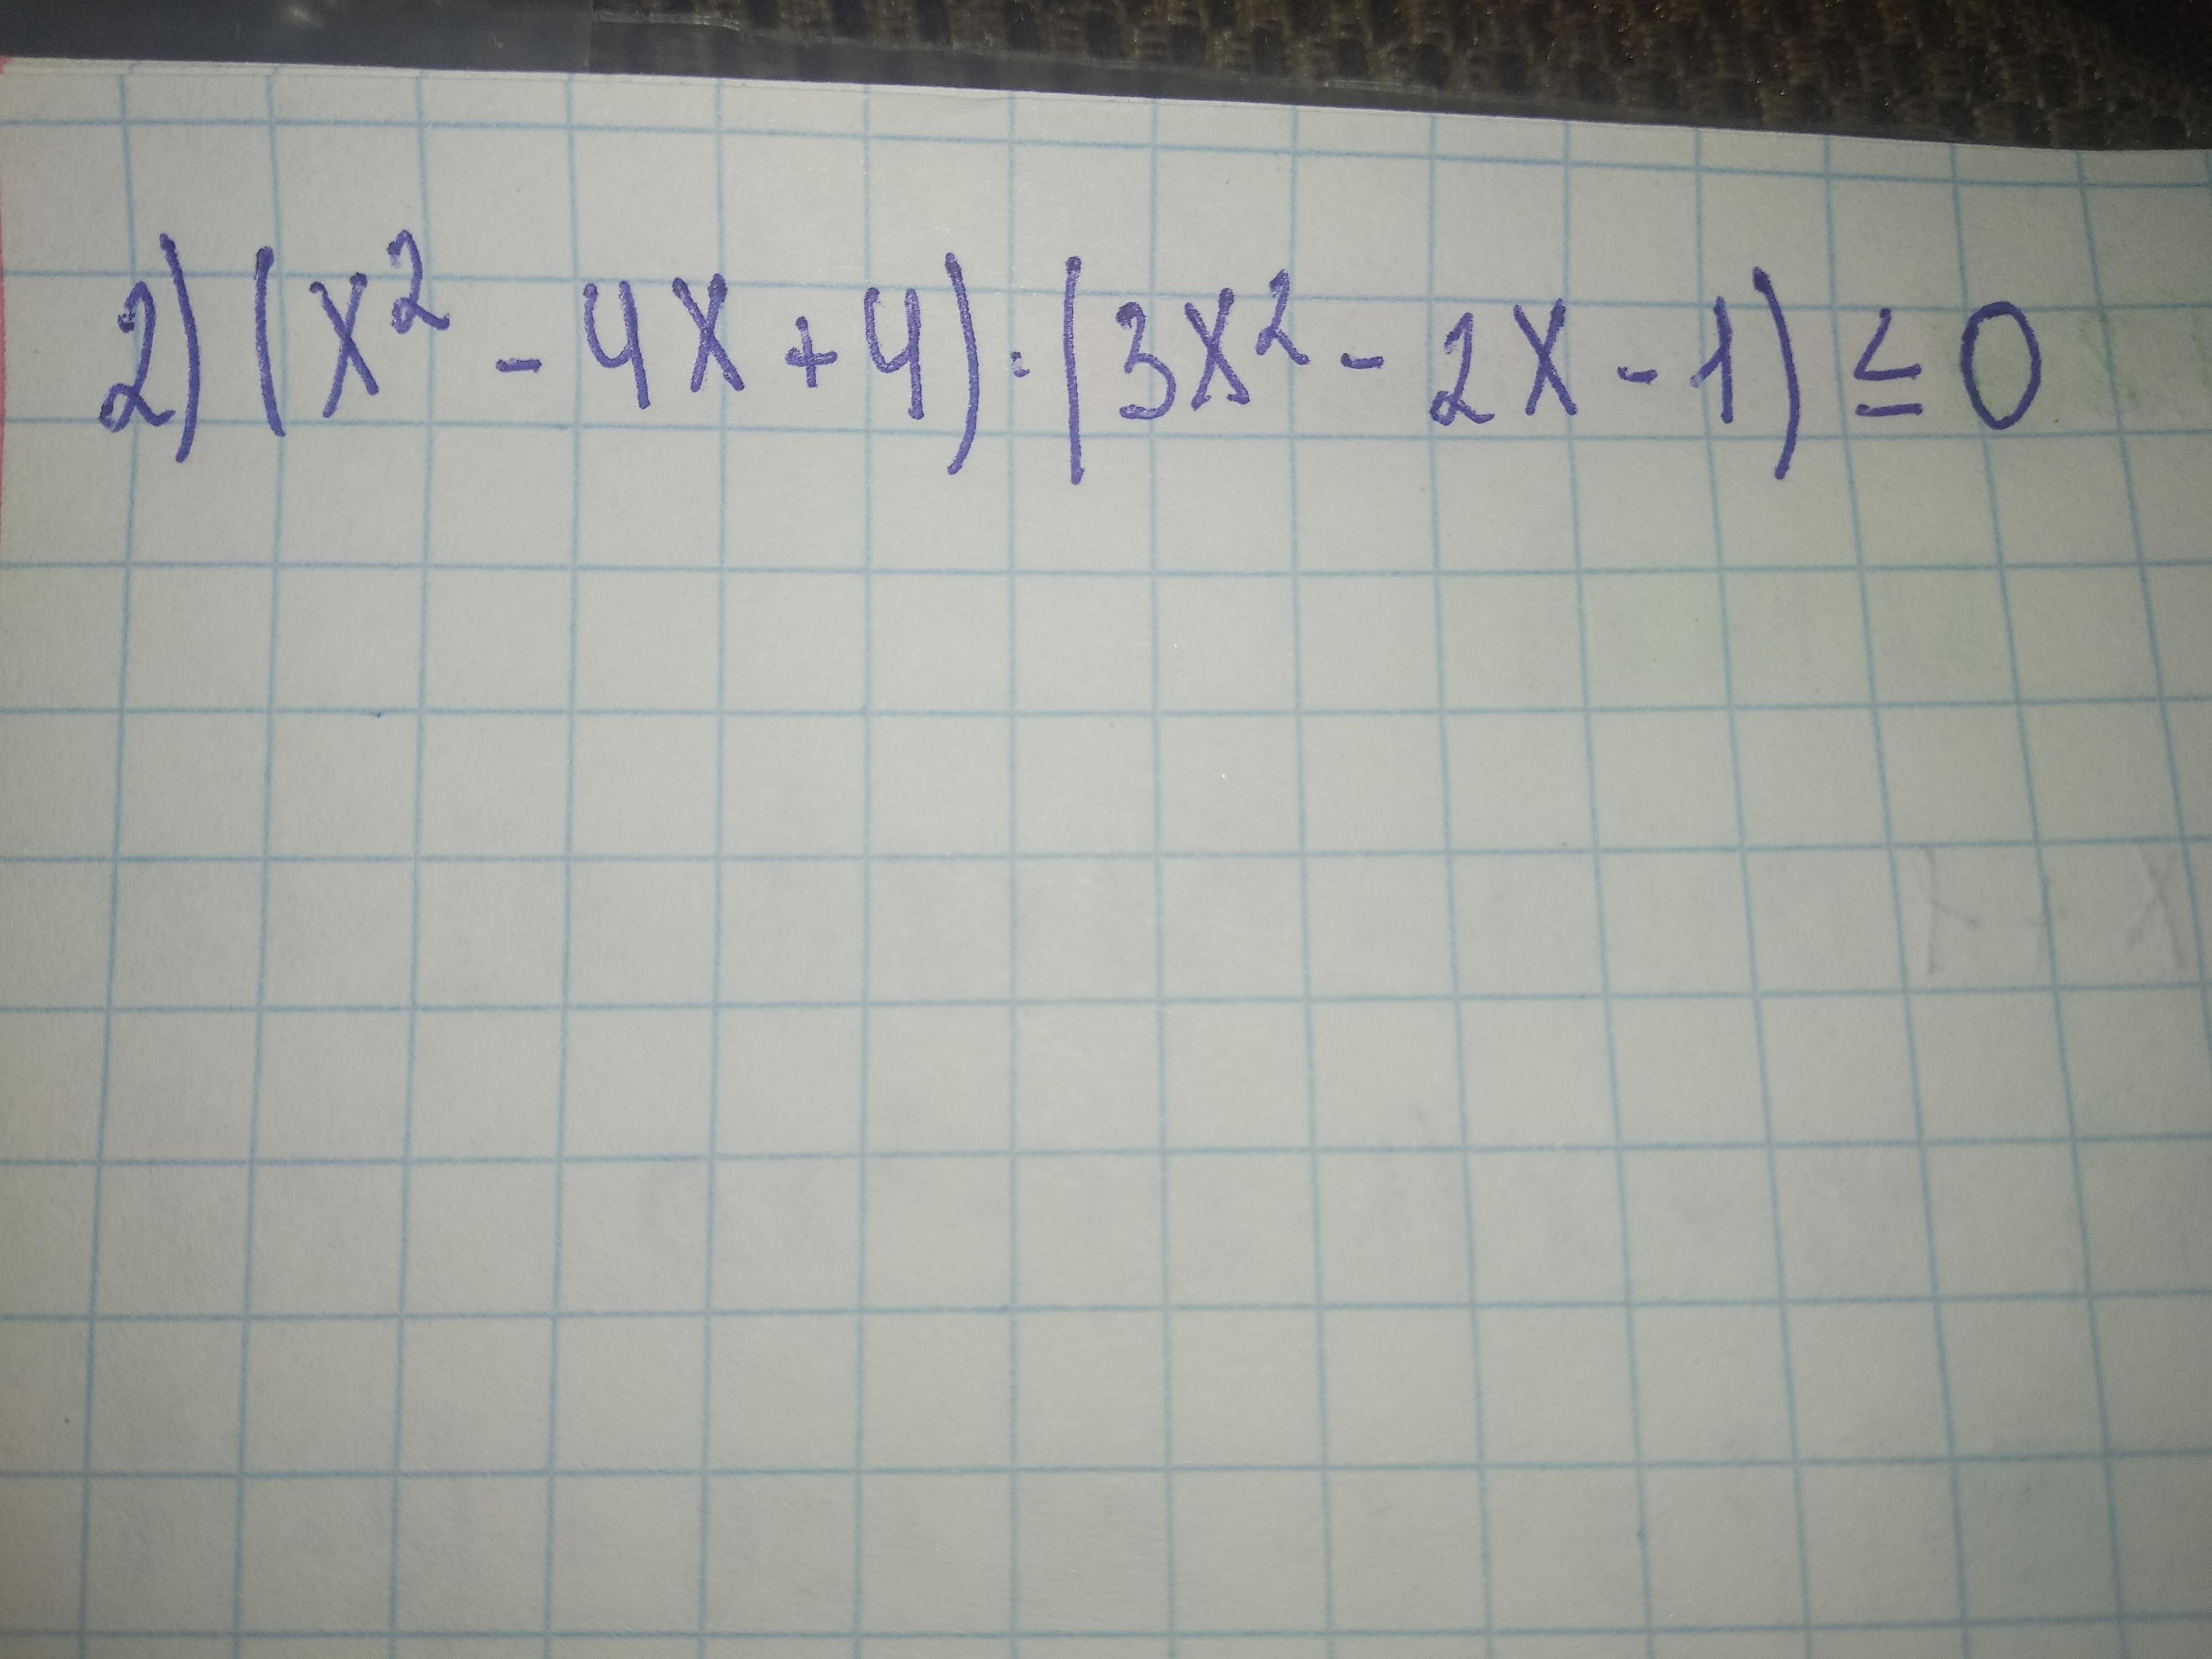 2) (x² - 4x + 4) · (3x² - 2x - 1) ≤ 0